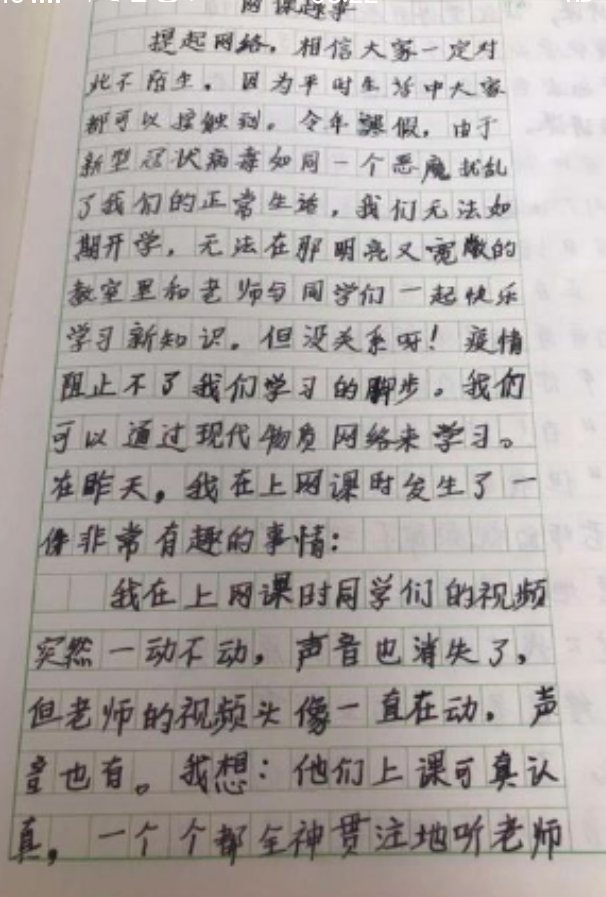 网课趣事
提起网络，相信大家一定对
此不陌生。因为平时生活中大家
都可以接触到。今年寒假，由于
新型冠状病毒如同一个恶魔扰乱
了我们的正常生活，我们无法如
期开学，无法在那明亮又宽敞的
教室里和老师与同学们一起快乐
学习新知识。但没关系呀！疫情
阻止不了我们学习的脚步。我们
可以通过现代物质网络来学习。
在昨天，我在上网课时发生了一
件非常有趣的事情：
我在上网课时同学们的视频
突然一动不动，声音也消失了，
但老师的视频头像一直在动，声
音也有。我想：他们上课可真认
真，一个个都全神贯注地听老师